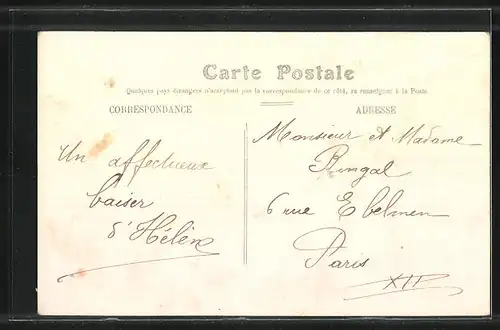 Carte Postale
Quelques pays étrangers n'acceptent pas la correspondance de ce côté, se renseigner à la Poste
CORRESPONDANCE
ADRESSE
Un affectueux
baiser
d'Hélène
Monsieur et Madame
Bingal
6 rue Ebelmen
Paris
XII